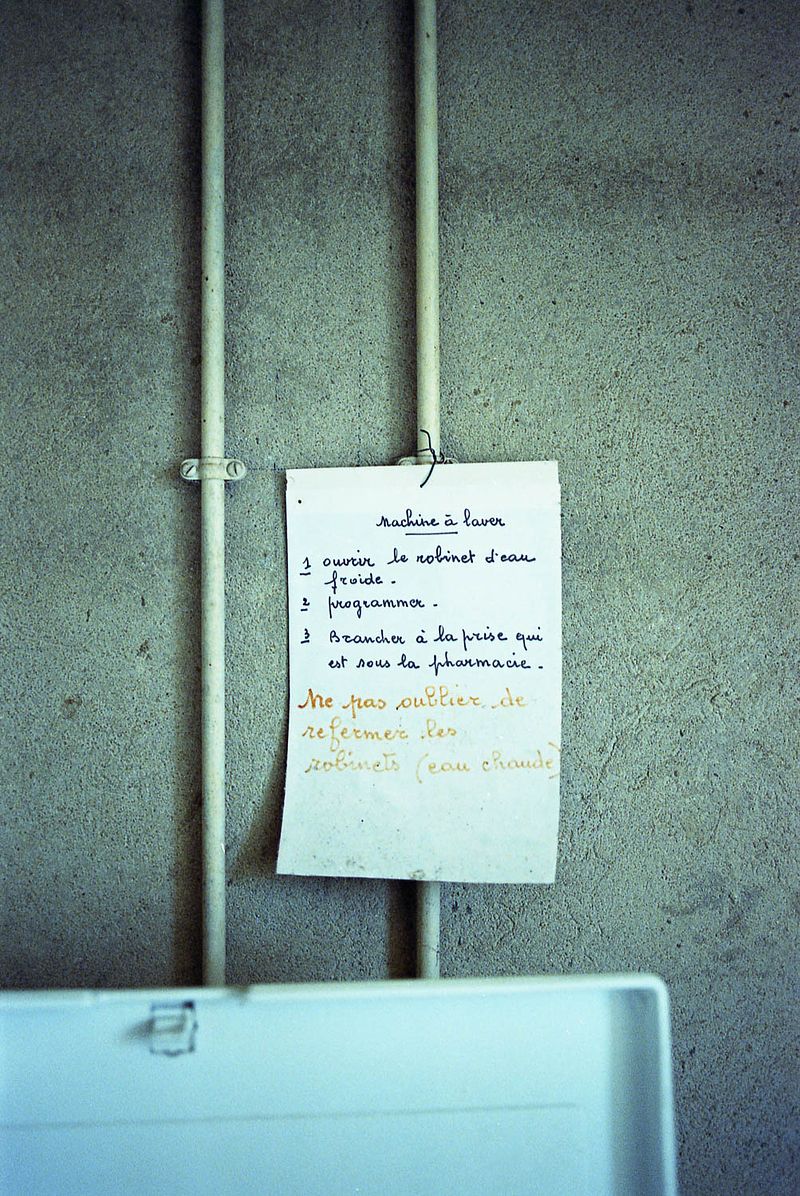 Machine à laver
1 ouvrir le robinet d'eau
froide.
2 programmer.
3 Brancher à la prise qui
est sous la pharmacie.
Ne pas oublier de
refermer les
robinets (eau chaude)